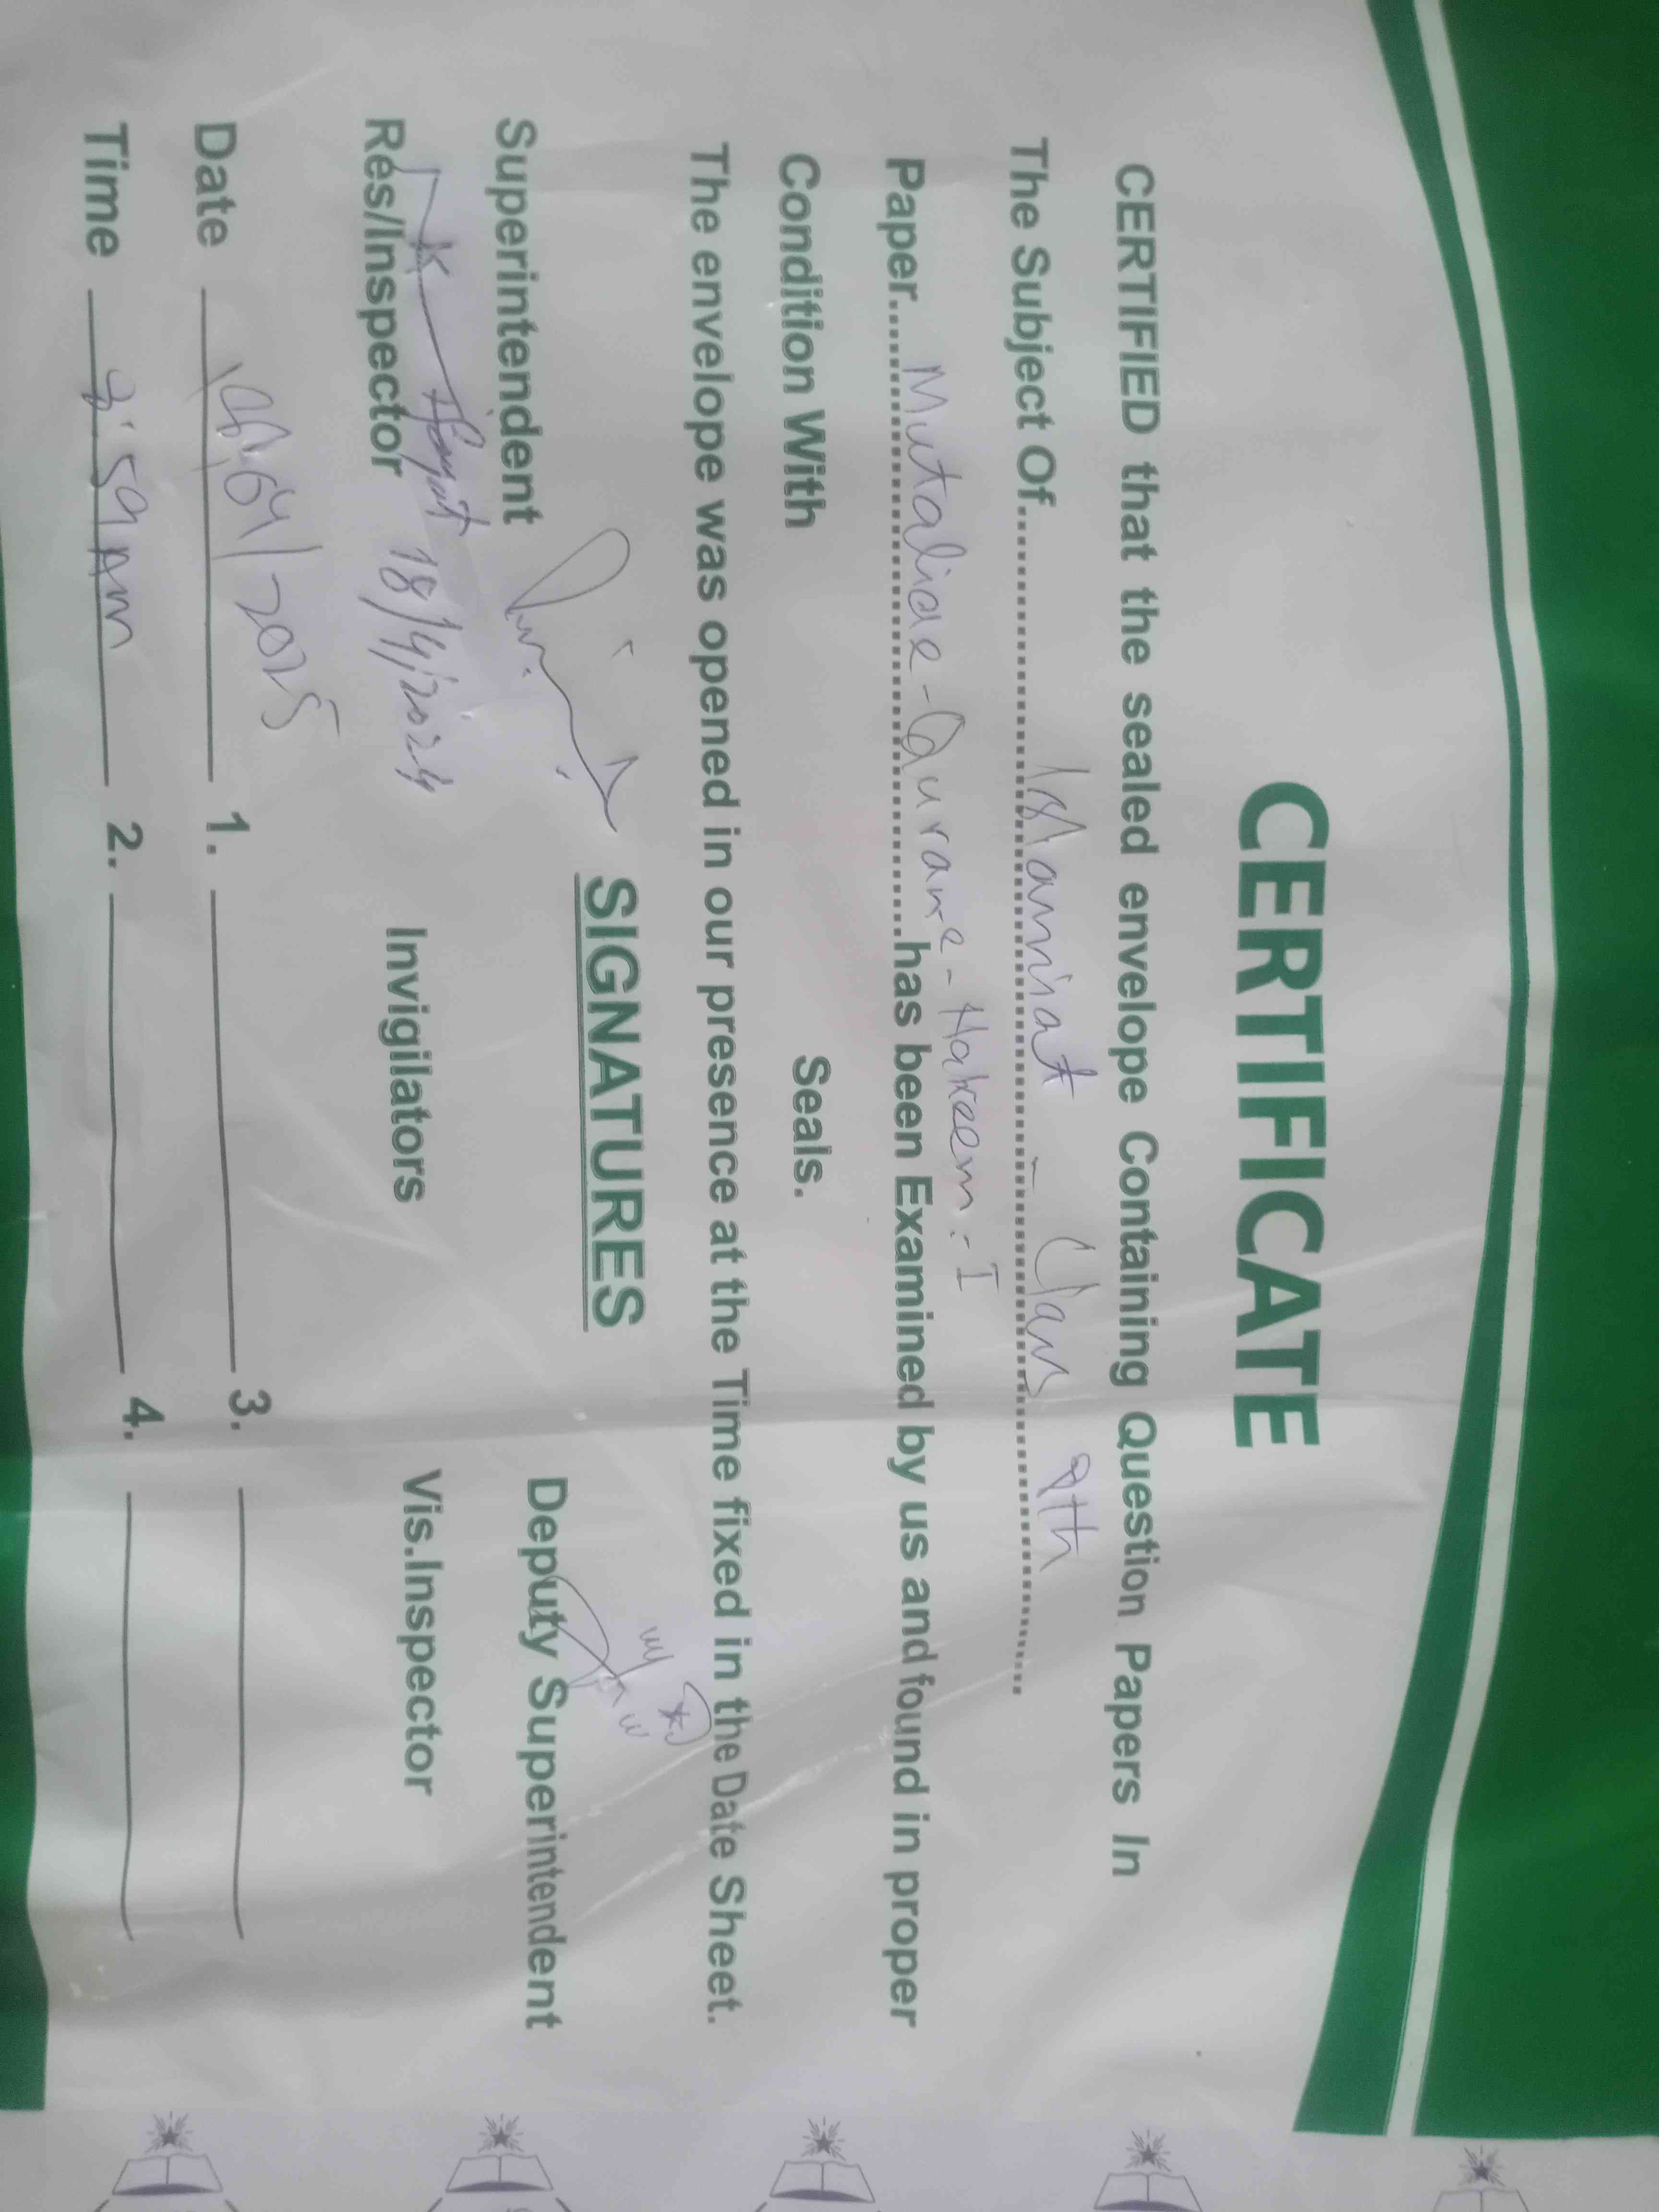 CERTIFICATE
CERTIFIED that the sealed envelope Containing Question Papers In
The Subject Of.......... Islamiat - Class 9th ..........
Paper.... Mutaliae - Qurane - Hakeem - I ....has been Examined by us and found in proper
Condition With Seals.
The envelope was opened in our presence at the Time fixed in the Date Sheet.
SIGNATURES
Superintendent Deputy Superintendent
Res/Inspector 18/4/2024 Invigilators Vis.Inspector
Date 2025 1. 3.
Time 59 Am 2. 4.